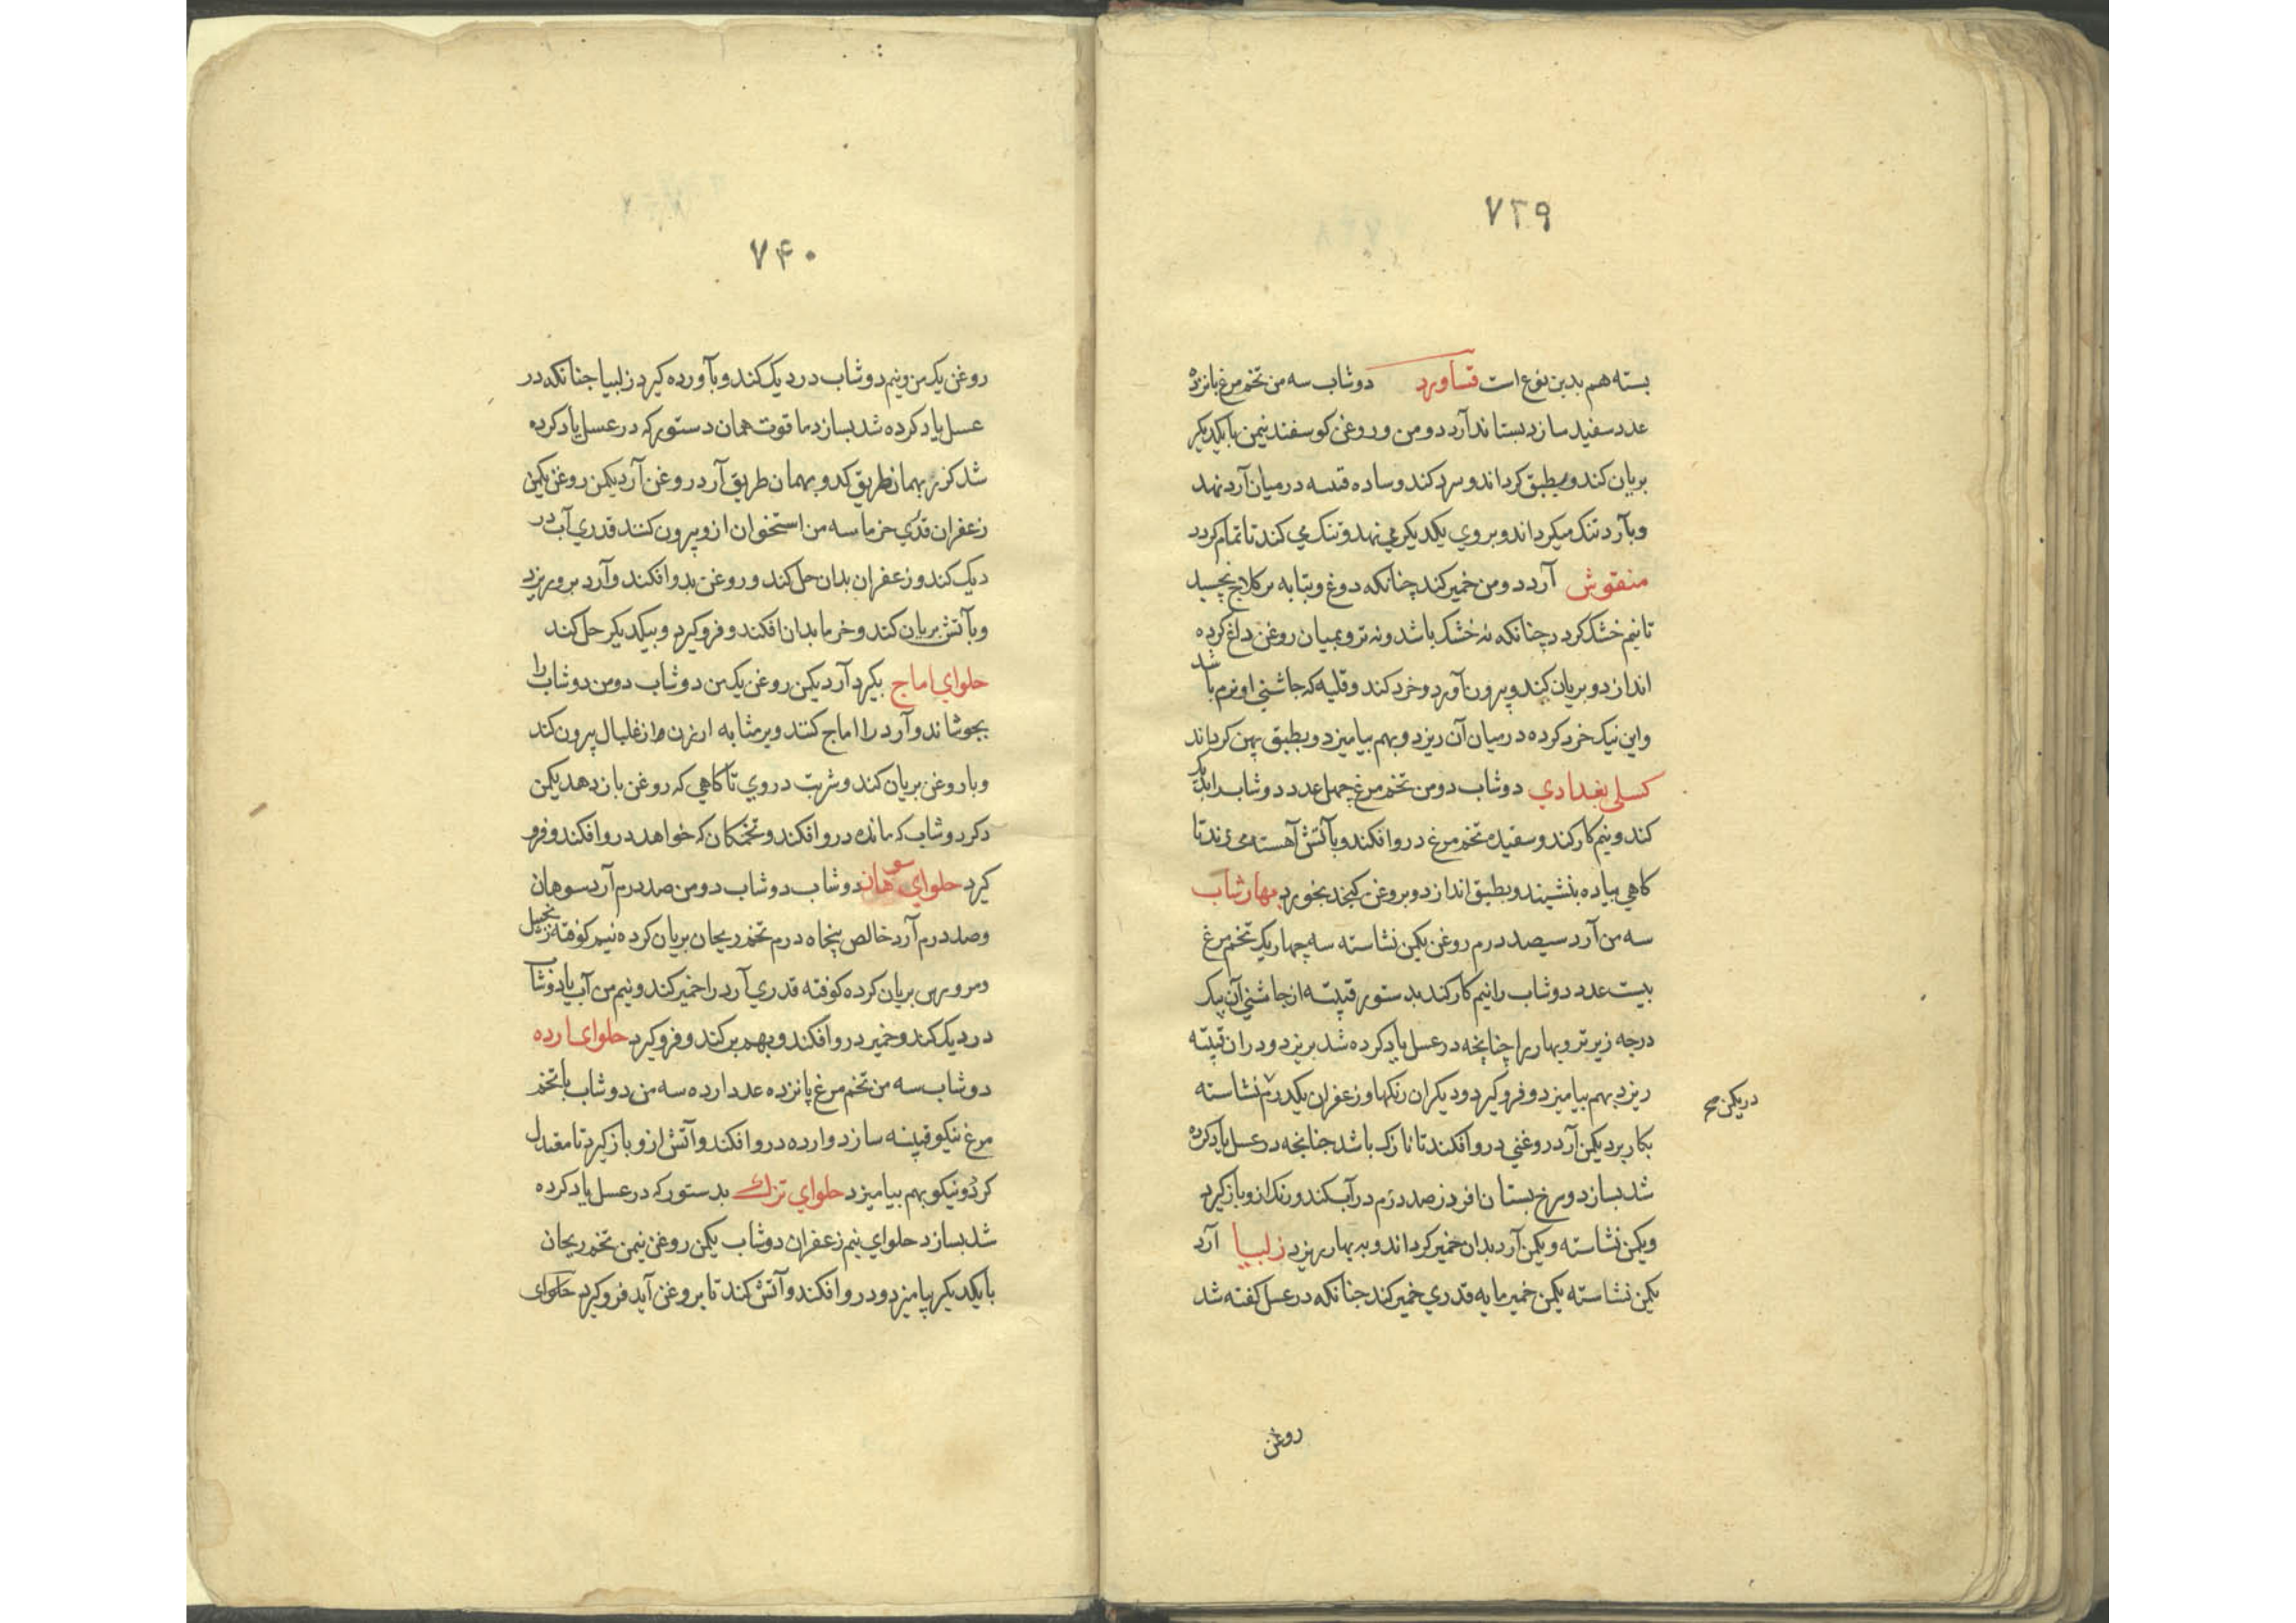 ۷۳۹
بسته هم بدین نوع است قساورد دوشاب سه من تخم مرغ پانزده
عدد سفید سازد بستاند آرد دو من و روغن کوسفند نیمن با یکدیکر
بریان کند و بطبق کرداند و سرد کند و ساده قبسه در میان آرد نهد
و بآرد تنک میکرداند و بروي یکدیکر مي نهد و تنک مي کند تا تمام کردد
منقوش آرد دو من خمیر کند چنانکه دوغ و بتابه بر کلاج بچسبد
تا نیم خشک کردد چنانکه نه خشک باشد و نه تر و بمیان روغن داغ کرده
اندازد و بریان کند و بیرون آورد و خرد کند و قلیه که جاشني او نرم باشد
و این نیک خرد کرده در میان آن ریزد و بهم بیامیزد و بطبق پهن کرداند
کسلی بغدادي دوشاب دو من تخم مرغ چهل عدد دوشاب را بدیک
کند و نیم کار کند و سفیده تخم مرغ در وافکند و بآتش آهسته می زند تا
کاهي بیاده بنشیند و بطبق اندازد و بروغن کنجد بخورد بهار شاب
سه من آرد سیصد درم روغن یکمن نشاسته سه چهاریک تخم مرغ
بیست عدد دوشاب را نیم کار کند بدستور قبیته از جاشني آن یک
درجه زیرتر و بهار را چنانچه در عسل یاد کرده شد بریزد و در ان قبیته
ریزد بهم بیامیزد و فروکیرد و دیکران رنکها و زعفران یکدرم نشاسته
در یکمن صح
بکار برد یکمن آرد روغني در وافکند تا نازک باشد جنانجه در عسل یاد کرده
شد بسازد و سرخ بستان افروز صد درم در آب کند و رنک از و باز کیرد
و یکمن نشاسته و یکمن آرد بدان خمیر کرداند و به بهار بریزد زلبیا آرد
یکمن نشاسته یکمن خمیر مایه قدري خمیر کند جنانکه در عسل کفته شد
روغن
۷۴۰
روغن یک من و نیم دوشاب در دیک کند و بآ ورده کیرد زلبیا جنانکه در
عسل یاد کرده شد بسازد ماقوت همان دستور که در عسل یاد کرده
شد کزر بهمان طریق کدو بهمان طریق آرد روغن آرد یکمن روغن یکمن
زعفران قدري خرما سه من استخوان ازو بیرون کنند قدري آب در
دیک کند و زعفران بدان حل کند و روغن بدو افکند و آرد برو ریزد
و بآتش بریان کند و خرما بدان افکند و فروکیرد و بیکدیکر حل کند
حلواي اماج بکیرد آرد یکمن روغن یک من دوشاب دو من دوشاب را
بجوشاند و آرد را اماج کنند و بر مثابه ارزن و از غلبال بیرون کند
و با روغن بریان کند و شربت در وي تا کاهي که روغن باز دهد یکمن
دکر دوشاب که مانده در وافکند و تخمکان که خواهد در وافکند و فرو
کیرد حلواي سوهان دوشاب دوشاب دو من صد درم آرد سوهان
و صد درم آرد خالص پنجاه درم تخم ریحان بریان کرده نیم کوفته زنجبیل
بریان کرده کوفته قدري آرد را خمیر کند و نیم من آب یا دوشاب
در دیک کند و خمیر در وافکند و بهم بر کند و فروکیرد حلوای ارده
دوشاب سه من تخم مرغ پانزده عدد ارده سه من دوشاب با تخم
مرغ نیکو قبیته سازد و ارده در وافکند و آتش ازو باز کیرد تا معتدل
کردد و نیکو بهم بیامیزد حلواي ترک بدستور که در عسل یاد کرده
شد بسازد حلواي نیم زعفران دوشاب یکمن روغن نیمن تخم ریحان
با یکدیکر بیامیزد و در وافکند و آتش کند تا بروغن آید فروکیرد حلوای